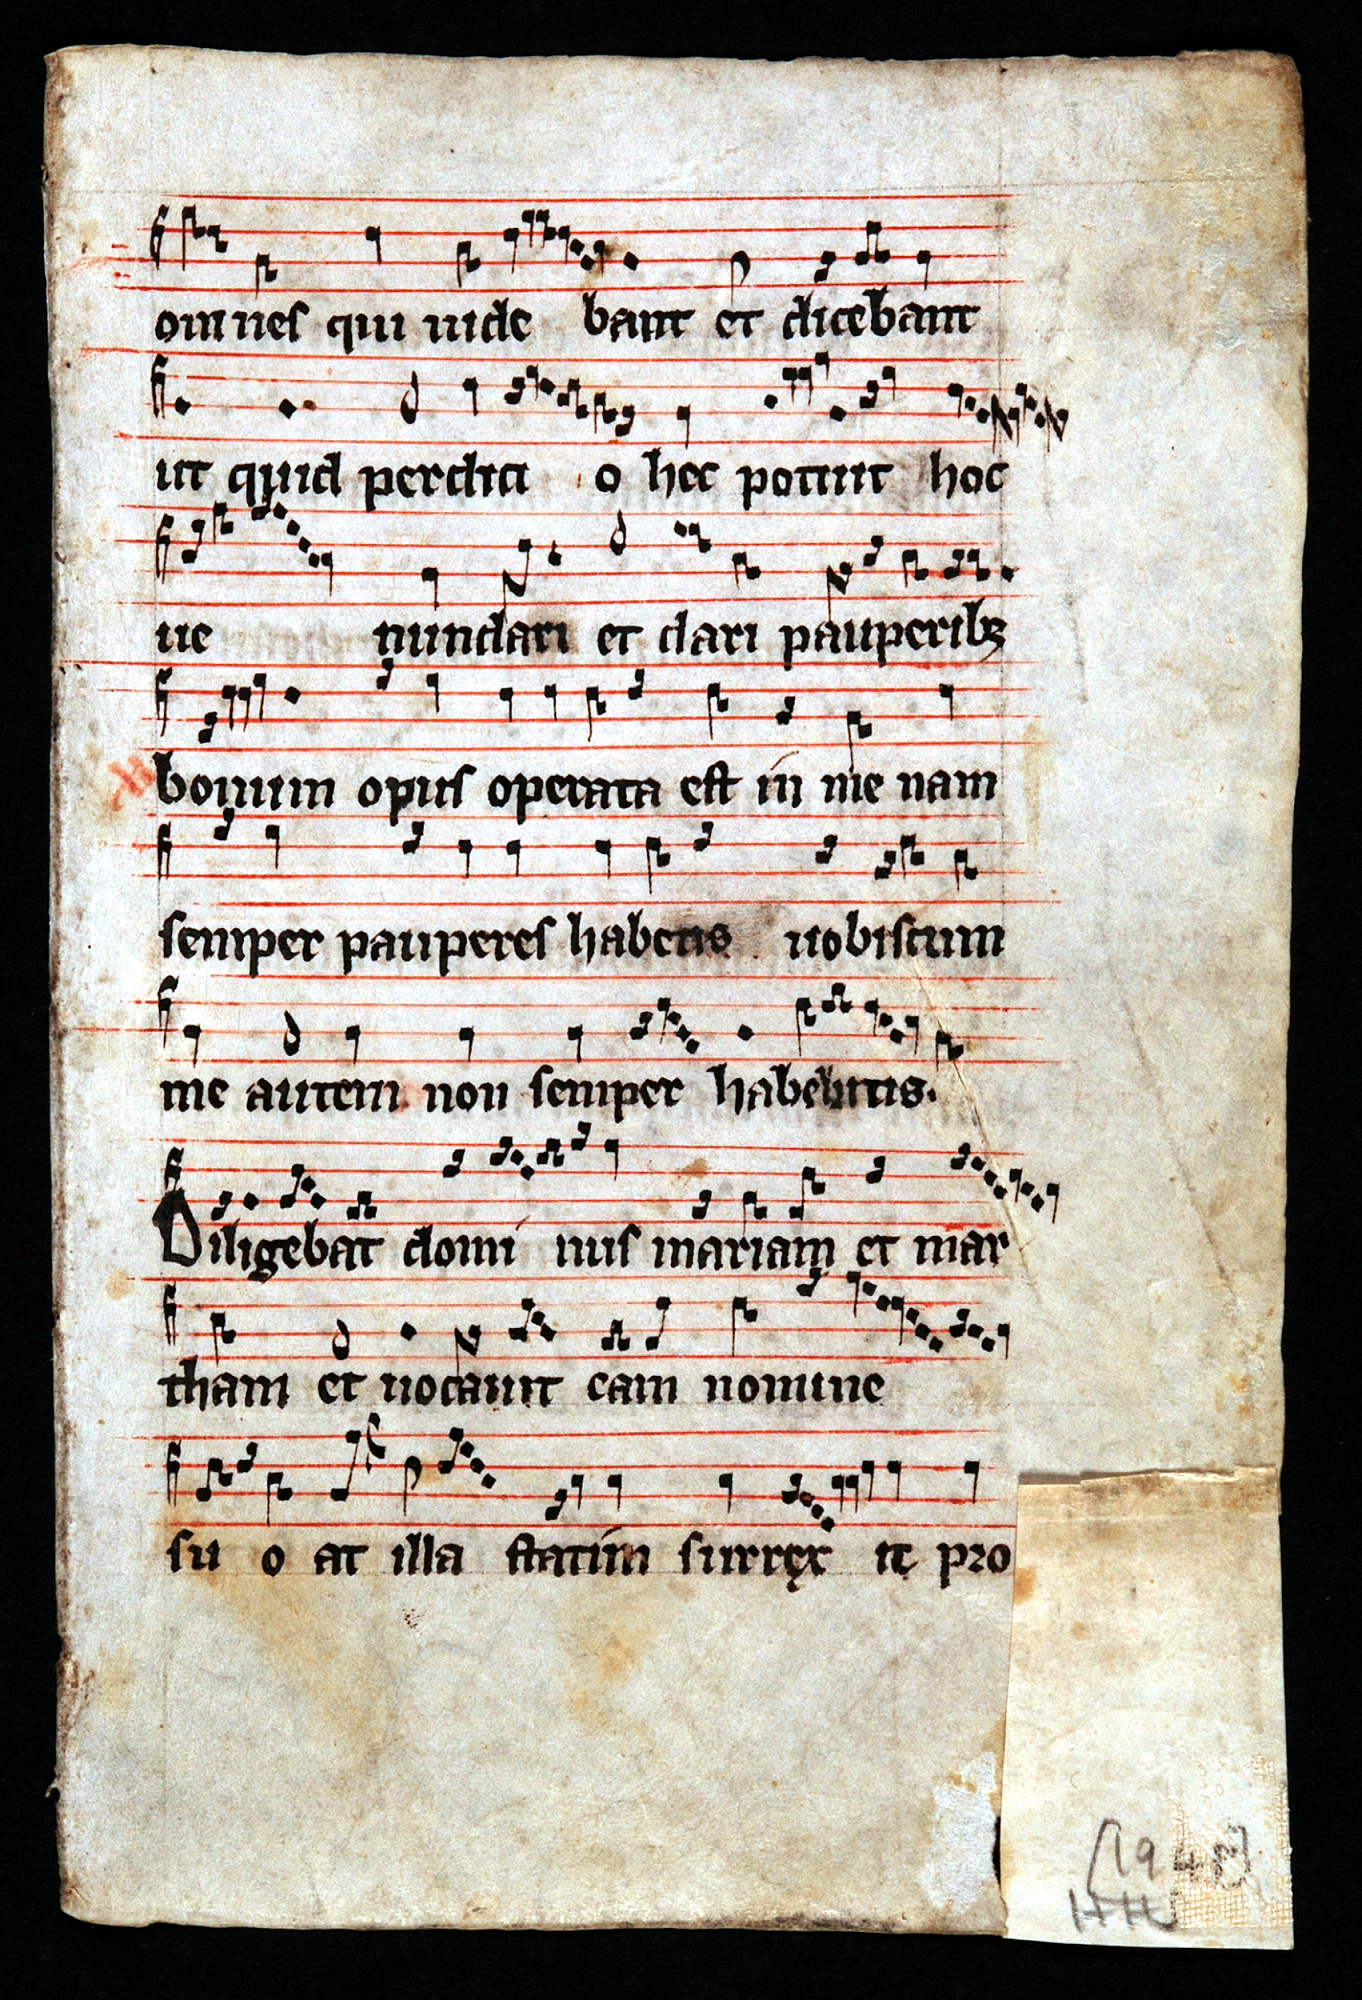 omnes qui uide bant et dicebant
ut quid perdici o hec potuit hoc
ue nundari et dari pauperibꝫ
bonum opus operata est in me nam
semper pauperes habetis uobiscum
me autem non semper habebitis.
Diligebat domi nus mariam et mar
tham et uocauit eam nomine
su o at illa statim surrex it pro